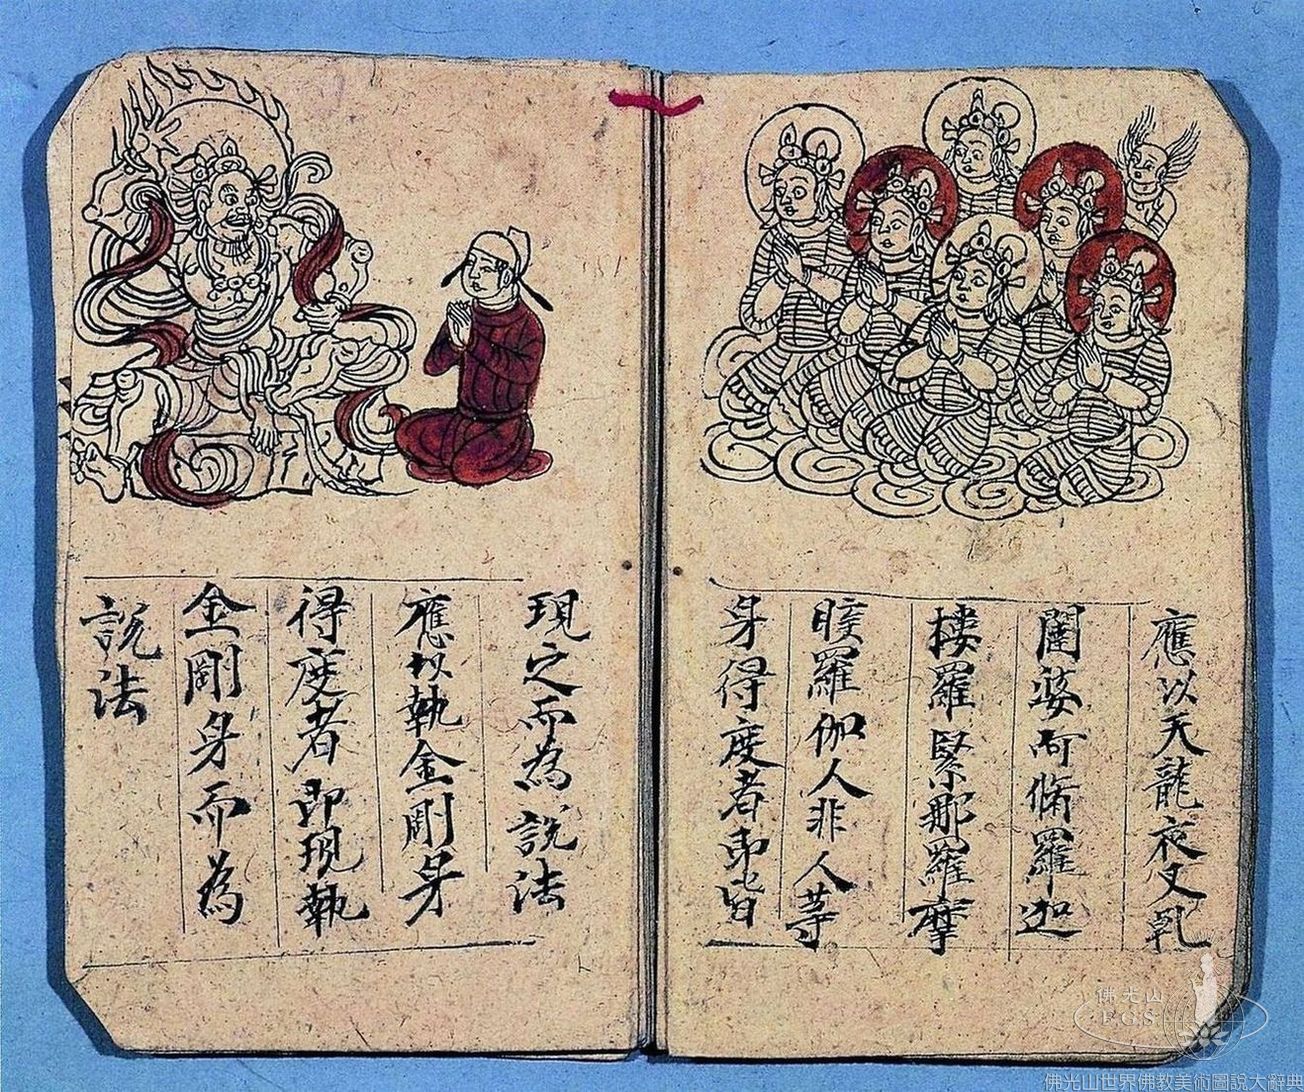 應以天龍夜叉乹
闥婆阿脩羅迦
樓羅緊那羅摩
睺羅伽人非人等
身得度者即皆
現之而為說法
應以執金剛身
得度者即現執
金剛身而為
說法
佛光山
F.G.S.
佛光山世界佛教美術圖說大辭典